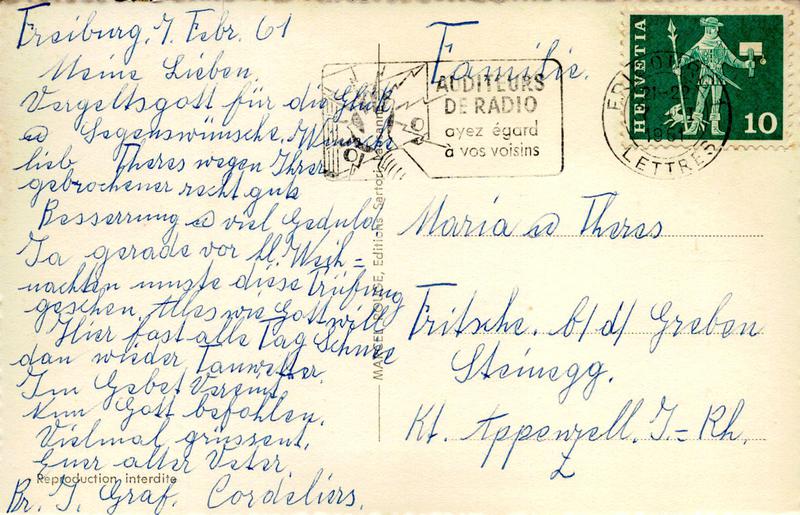 Freiburg, 7. Febr. 61
Meine Lieben,
Vergeltsgott für die Glück
u Segenswünsche, Wünsche
lieb. Theres wegen Ihrer
gebrochener recht gute
Besserrung u viel Geduld
Ja gerade vor hl. Weih=
nachten musste diese Prüfung
geschen, Alles wie Gott will
Hier fast alle Tag Schnee
dan wieder Tauwetter.
Im Gebet Vereint
Nun Gott befohlen.
Vielmal grüssent,
Euer alter Veter
Br. J. Graf. Cordeliers.
Reproduction interdite
MARCEL Editions Sartori
Familie.
AUDITEURS
DE RADIO
ayez égard
à vos voisins
LETTRES
HELVETIA
10
Maria u Theres
Fritsche. b/d/ Greben
Steinegg.
Kt. Appenzell. I=Rh.